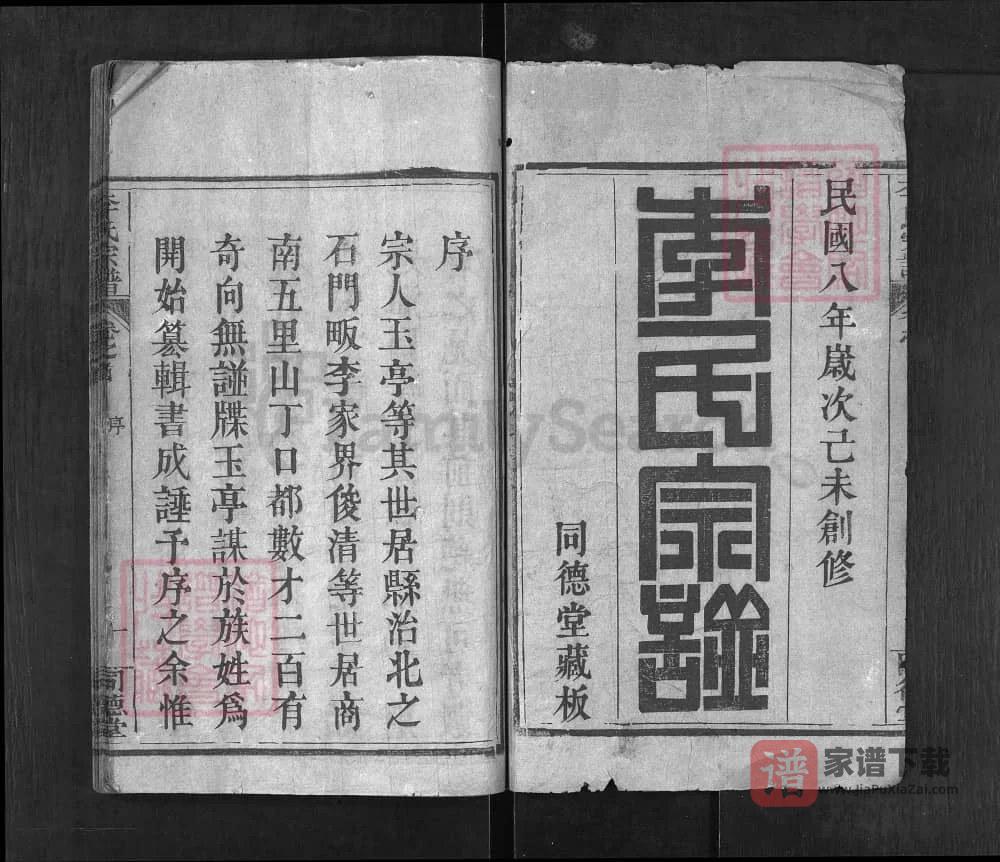 民國八年歲次己未創修
李氏宗譜
同德堂藏板
序
宗人玉亭等其世居縣治北之
石門畈李家界俊清等世居商
南五里山丁口都數才二百有
奇向無譜牒玉亭謀於族姓為
開始纂輯書成諈予序之余惟
李氏宗譜
卷之首
序
一
同德堂
FamilySearch
谱
家谱下载
www.JiaPuXiaZai.com